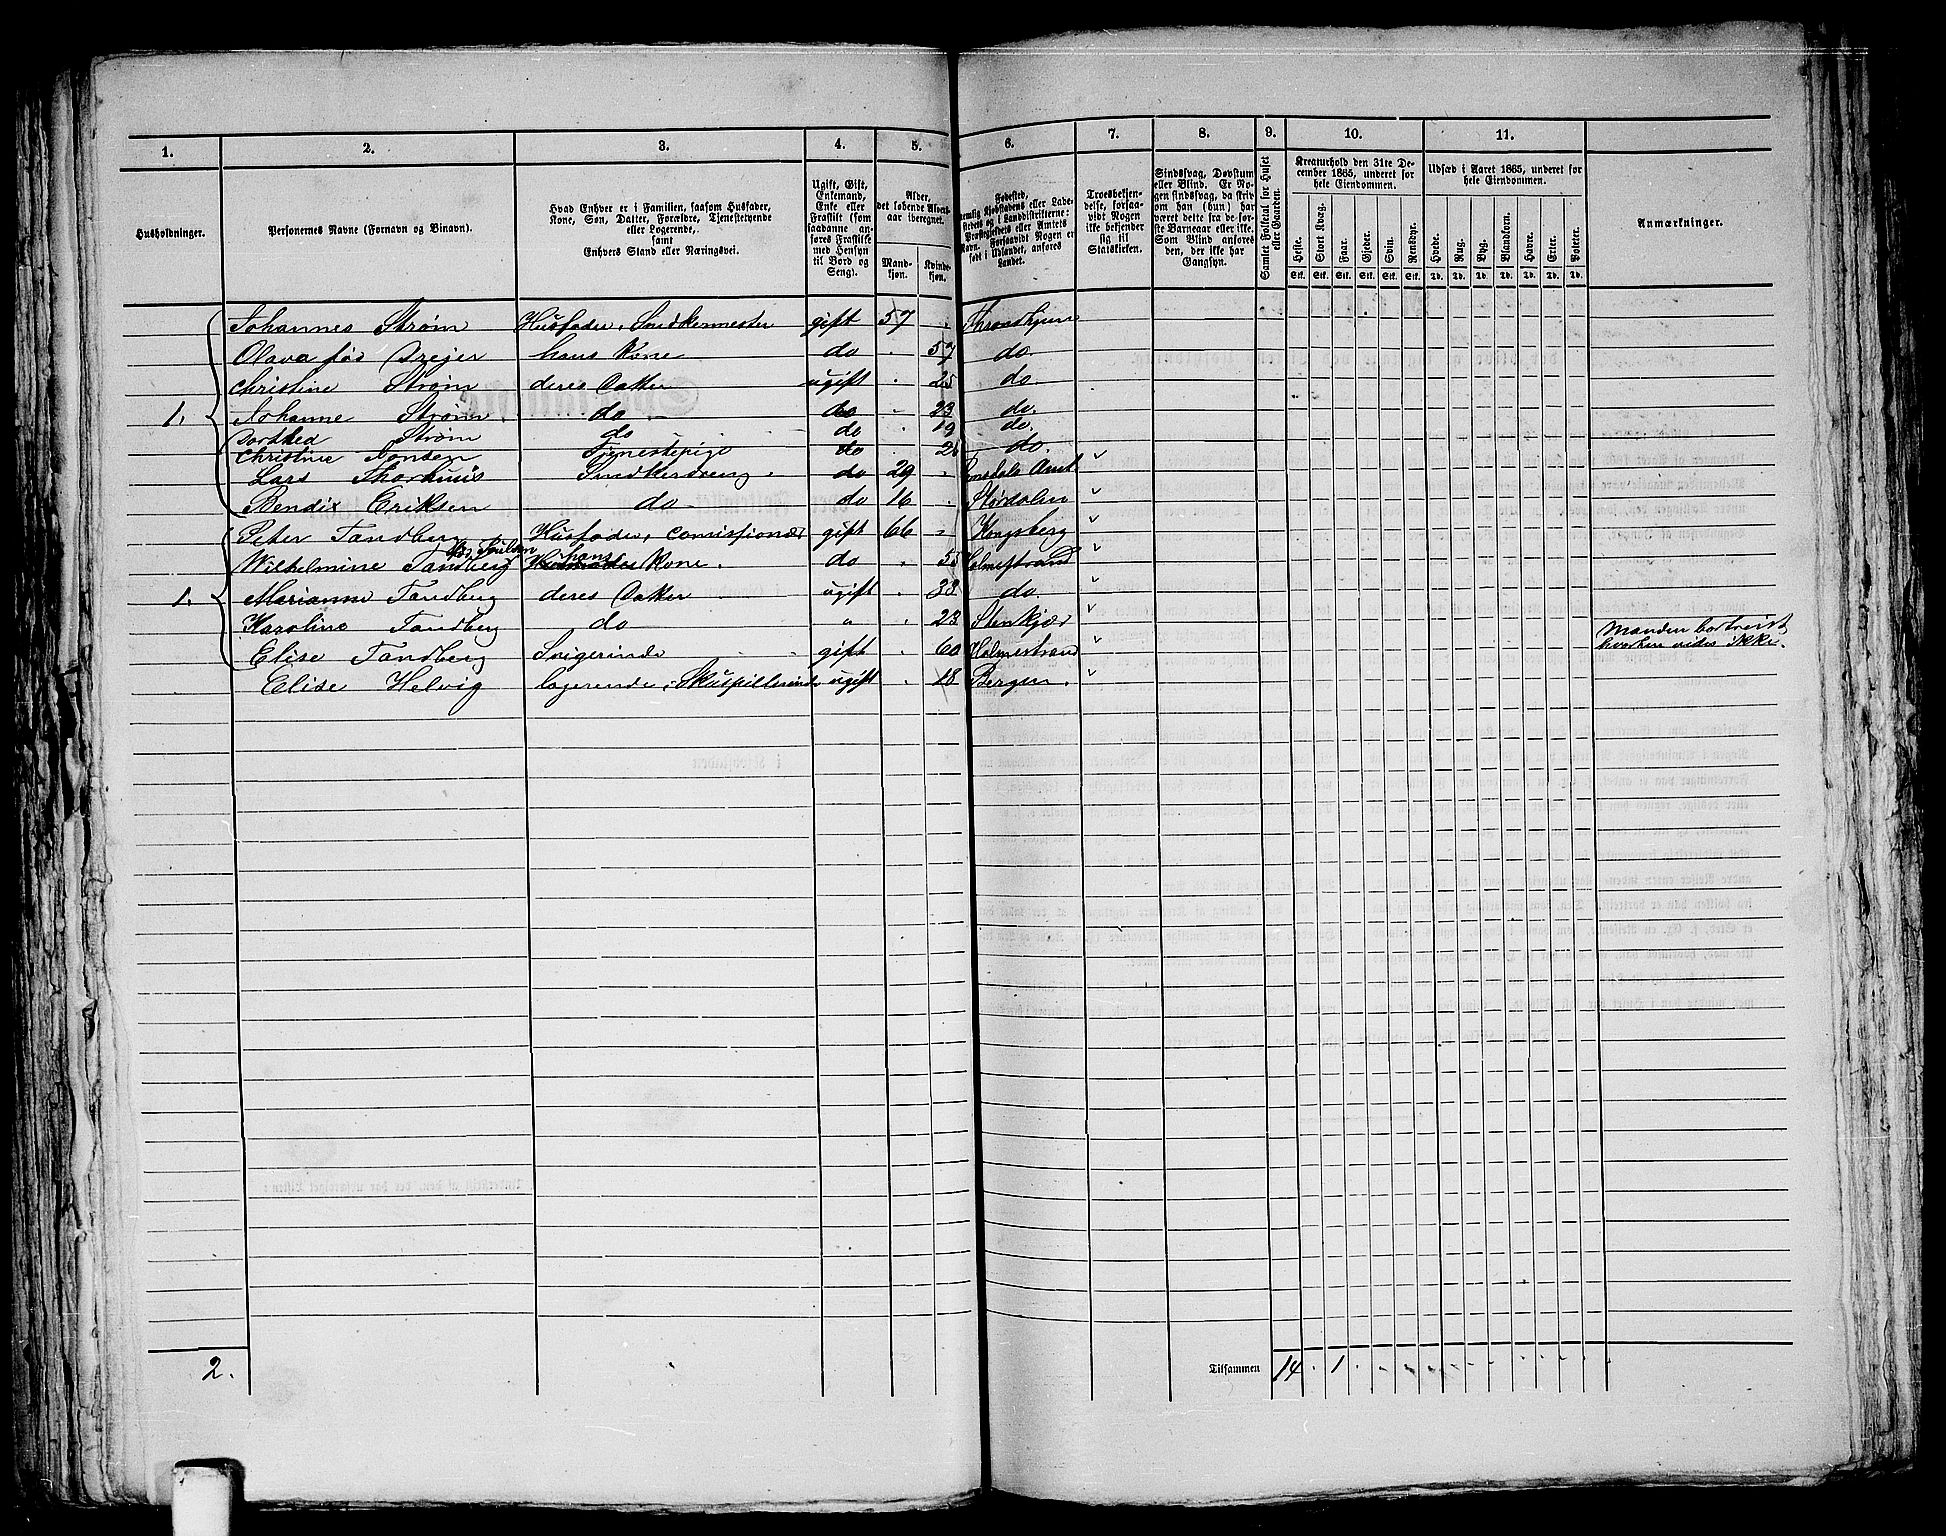 1. 2. 3. 4. 5. 6. 7. 8. 9. 10. 11.
Husholdninger.
Personernes Navne (Fornavn og Binavn).
Hvad Enhver er i Familien, saasom Husfader,
Kone, Søn, Datter, Forældre, Tjenestetyende
eller Logerende,
samt
Enhvers Stand eller Næringsvei.
Ugift, Gift,
Enkemand,
Enke eller
Fraskilt (som
saadanne an-
føres Fraskilte
med Hensyn
til Bord og
Seng).
Alder,
det løbende Alders-
aar iberegnet.
Mand-
kjøn.
Kvinde-
kjøn.
Fødested,
nemlig Kjøbstadens eller Lade-
stedets og i Landdistrikterne:
Præstegjeldets eller Amtets
Navn. Forsaavidt Nogen er
født i Udlandet, anføres
Landet.
Troesbekjen-
delse, forsaa-
vidt Nogen
ikke bekjender
sig til
Statskirken.
Sindssvag, Døvstum
eller Blind. Er No-
gen sindssvag, da skriv
om han (hun) har
været dette fra de før-
ste Barneaar eller ikke.
Som Blind anføres
den, der ikke har
Gangsyn.
Samlet Folketal for Huset
eller Gaarden.
Kreaturhold den 31te De-
cember 1865, underet for
hele Eiendommen.
Heste. Stort Kvæg. Faar. Gjeder. Svin. Rensdyr.
Stk. Stk. Stk. Stk. Stk. Stk.
Udsæd i Aaret 1865, underet for
hele Eiendommen.
Hvede. Rug. Byg. Blandkorn. Havre. Erter. Poteter.
Td. Td. Td. Td. Td. Td. Td.
Anmærkninger.
Johannes Strøm Husfader, Snedkermester gift 57 . Throndhjem
Olava fød hans Kone do . 57 do.
Christine Strøm deres Datter ugift . 25 do.
1. Johanne Strøm do do - 23 do.
Strøm do do . 19 do.
Christine Jensen Tjenestepige do . do. v
Lars Snedkerdreng. do 29 . Romsdals Amt v
Bendix Eriksen do do 16 . Størdalen v
Peter Tandberg Husfader, gift 66 . Kongsberg v
Wilhelmine Tandberg hans Kone. do . 55 Holmestrand v
1. Marianne Tandberg deres Datter ugift . 33 do. v
Karoline Tandberg do " . 23 Stenkjær v
Elise Tandberg Svigerinde gift . 60 Holmestrand v Manden bortreist
hvorhen vides ikke.
Elise Helvig logerende, Skuespillerinde ugift . 18 Bergen. v
2. Tilsammen 14 . 1